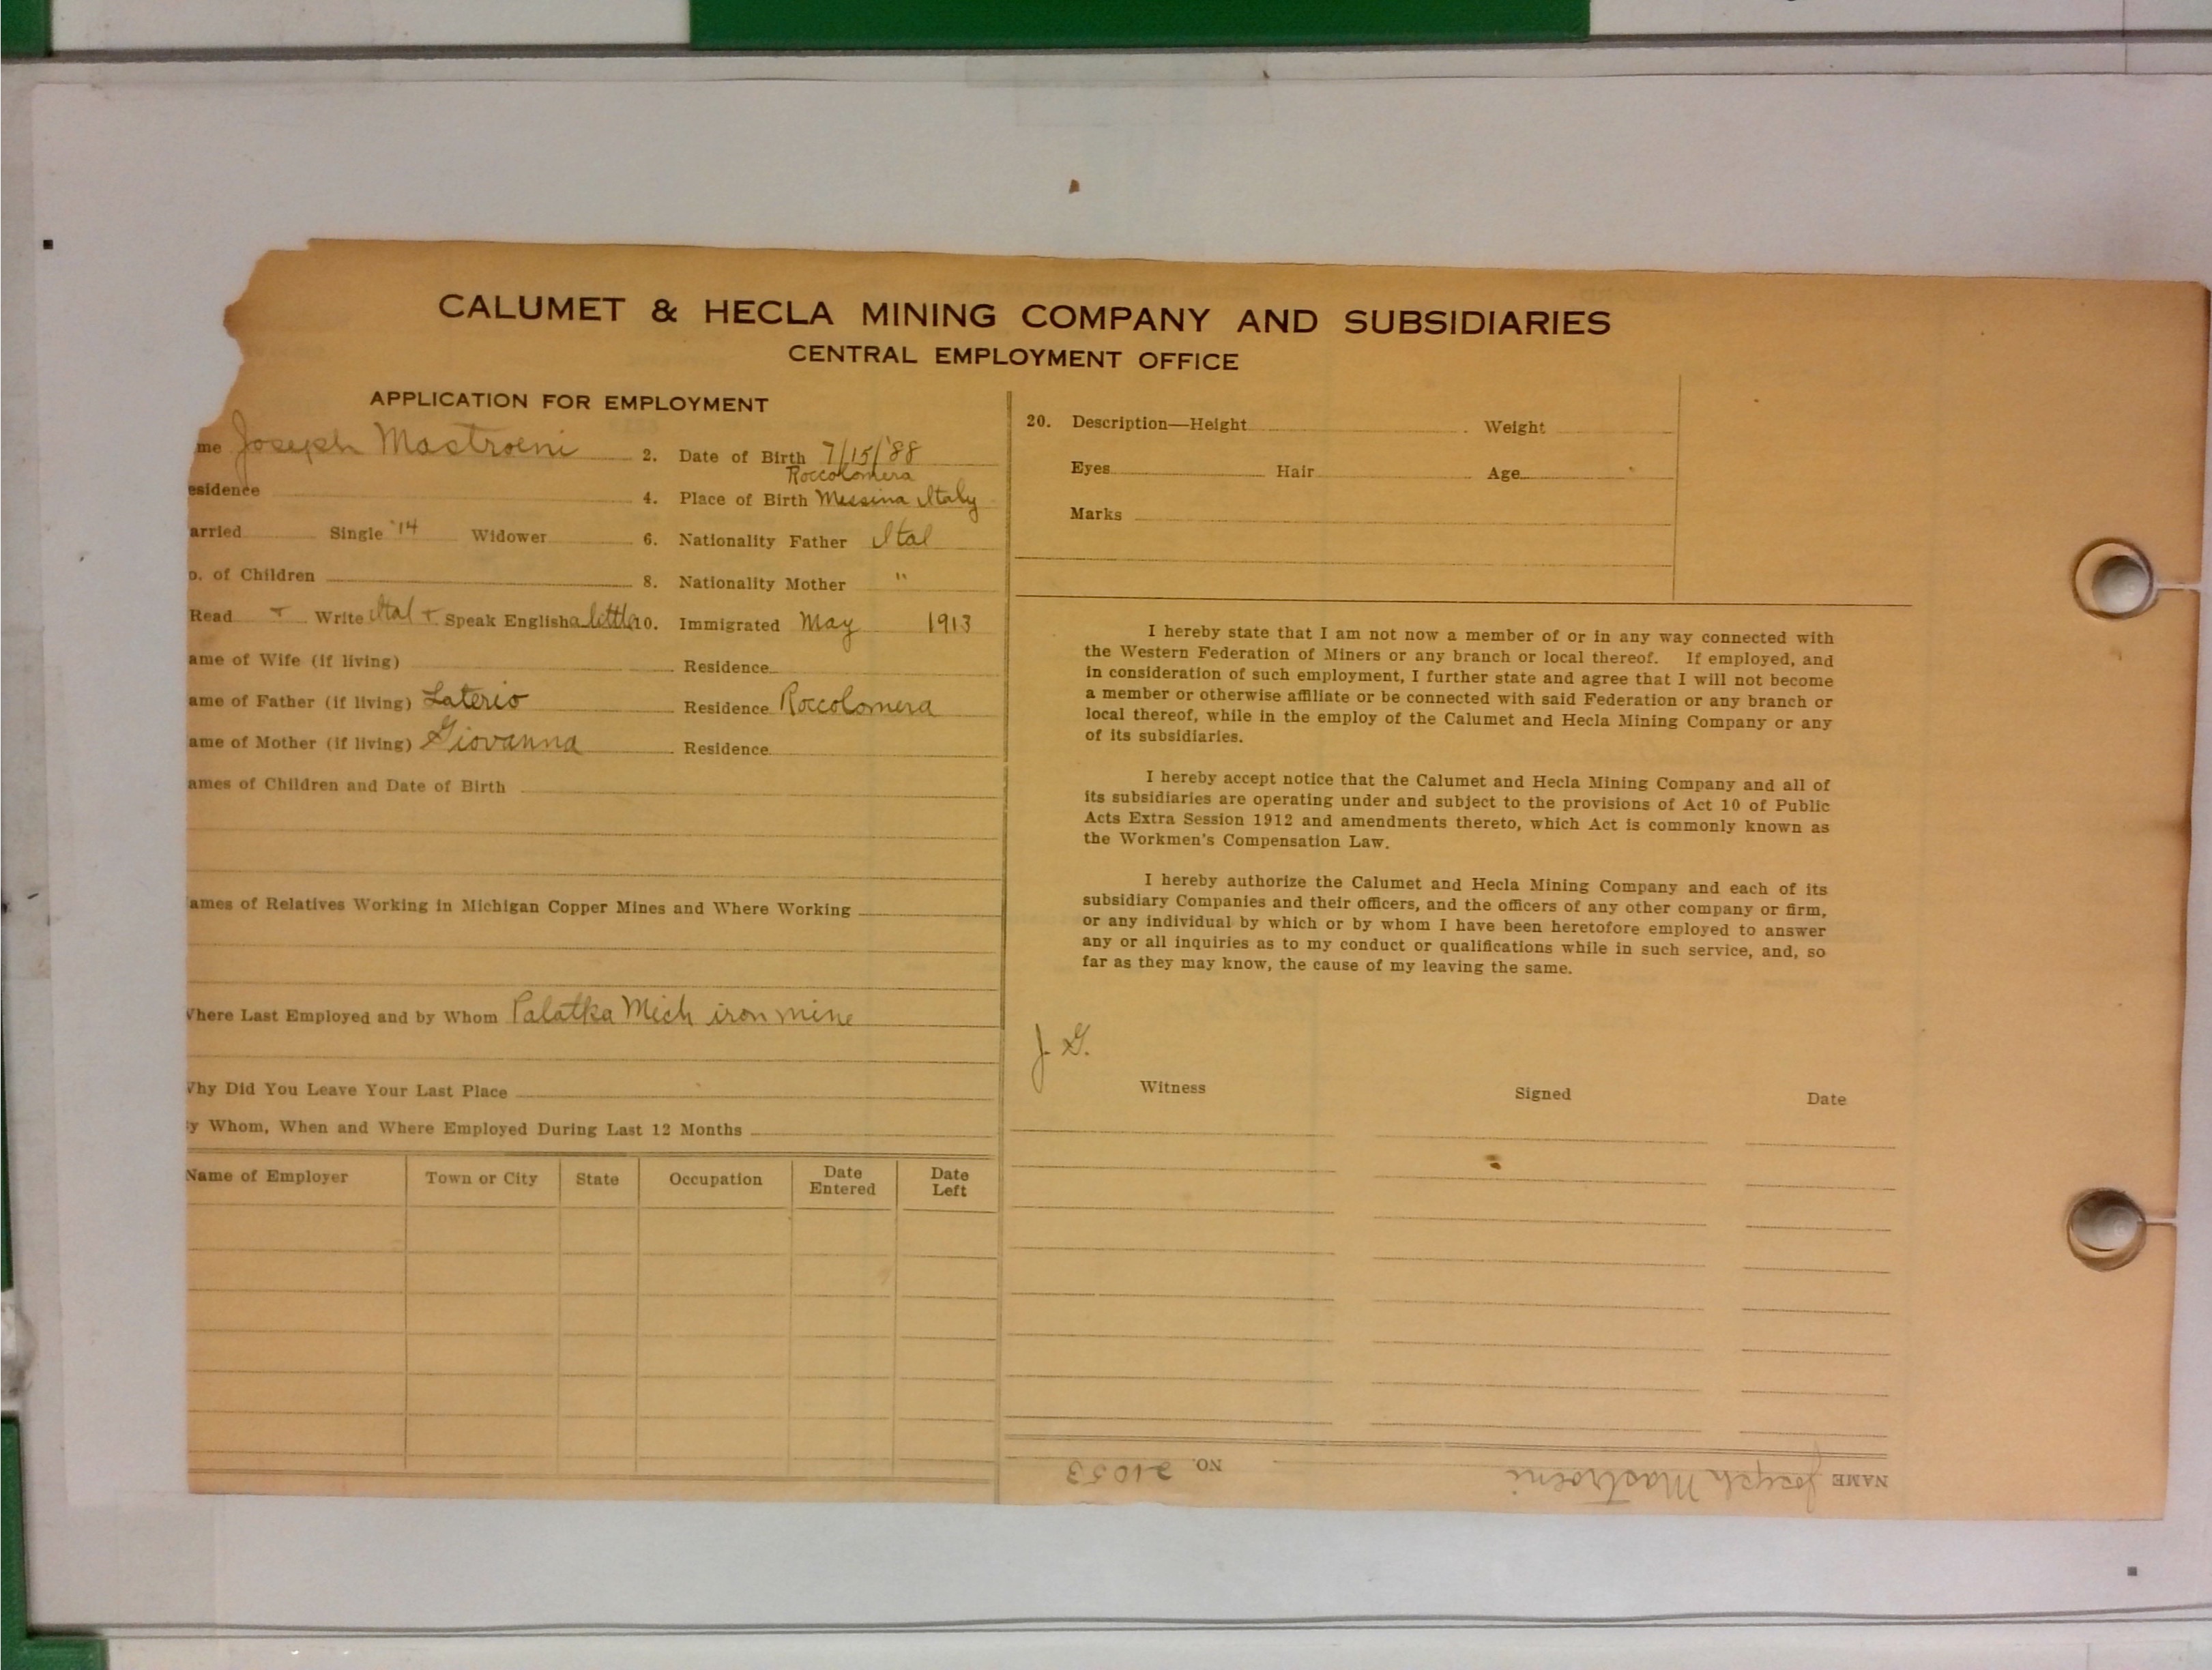 CALUMET & HECLA MINING COMPANY AND SUBSIDIARIES
CENTRAL EMPLOYMENT OFFICE
APPLICATION FOR EMPLOYMENT
me Joseph Mastroeni 2. Date of Birth 7/15/'88
Roccolomera
esidence 4. Place of Birth Messina Italy
arried Single '14 Widower 6. Nationality Father Ital
o. of Children 8. Nationality Mother "
Read + Write Ital + Speak English a little 10. Immigrated May 1913
ame of Wife (if living) Residence
ame of Father (if living) Laterio Residence Roccolomera
ame of Mother (if living) Giovanna Residence
ames of Children and Date of Birth
ames of Relatives Working in Michigan Copper Mines and Where Working
Where Last Employed and by Whom Palatka Mich iron mine
Why Did You Leave Your Last Place
y Whom, When and Where Employed During Last 12 Months
Name of Employer Town or City State Occupation Date Entered Date Left
20. Description—Height Weight
Eyes Hair Age
Marks
I hereby state that I am not now a member of or in any way connected with
the Western Federation of Miners or any branch or local thereof. If employed, and
in consideration of such employment, I further state and agree that I will not become
a member or otherwise affiliate or be connected with said Federation or any branch or
local thereof, while in the employ of the Calumet and Hecla Mining Company or any
of its subsidiaries.
I hereby accept notice that the Calumet and Hecla Mining Company and all of
its subsidiaries are operating under and subject to the provisions of Act 10 of Public
Acts Extra Session 1912 and amendments thereto, which Act is commonly known as
the Workmen's Compensation Law.
I hereby authorize the Calumet and Hecla Mining Company and each of its
subsidiary Companies and their officers, and the officers of any other company or firm,
or any individual by which or by whom I have been heretofore employed to answer
any or all inquiries as to my conduct or qualifications while in such service, and, so
far as they may know, the cause of my leaving the same.
J. G.
Witness Signed Date
NAME Joseph Mastroeni NO. 21053